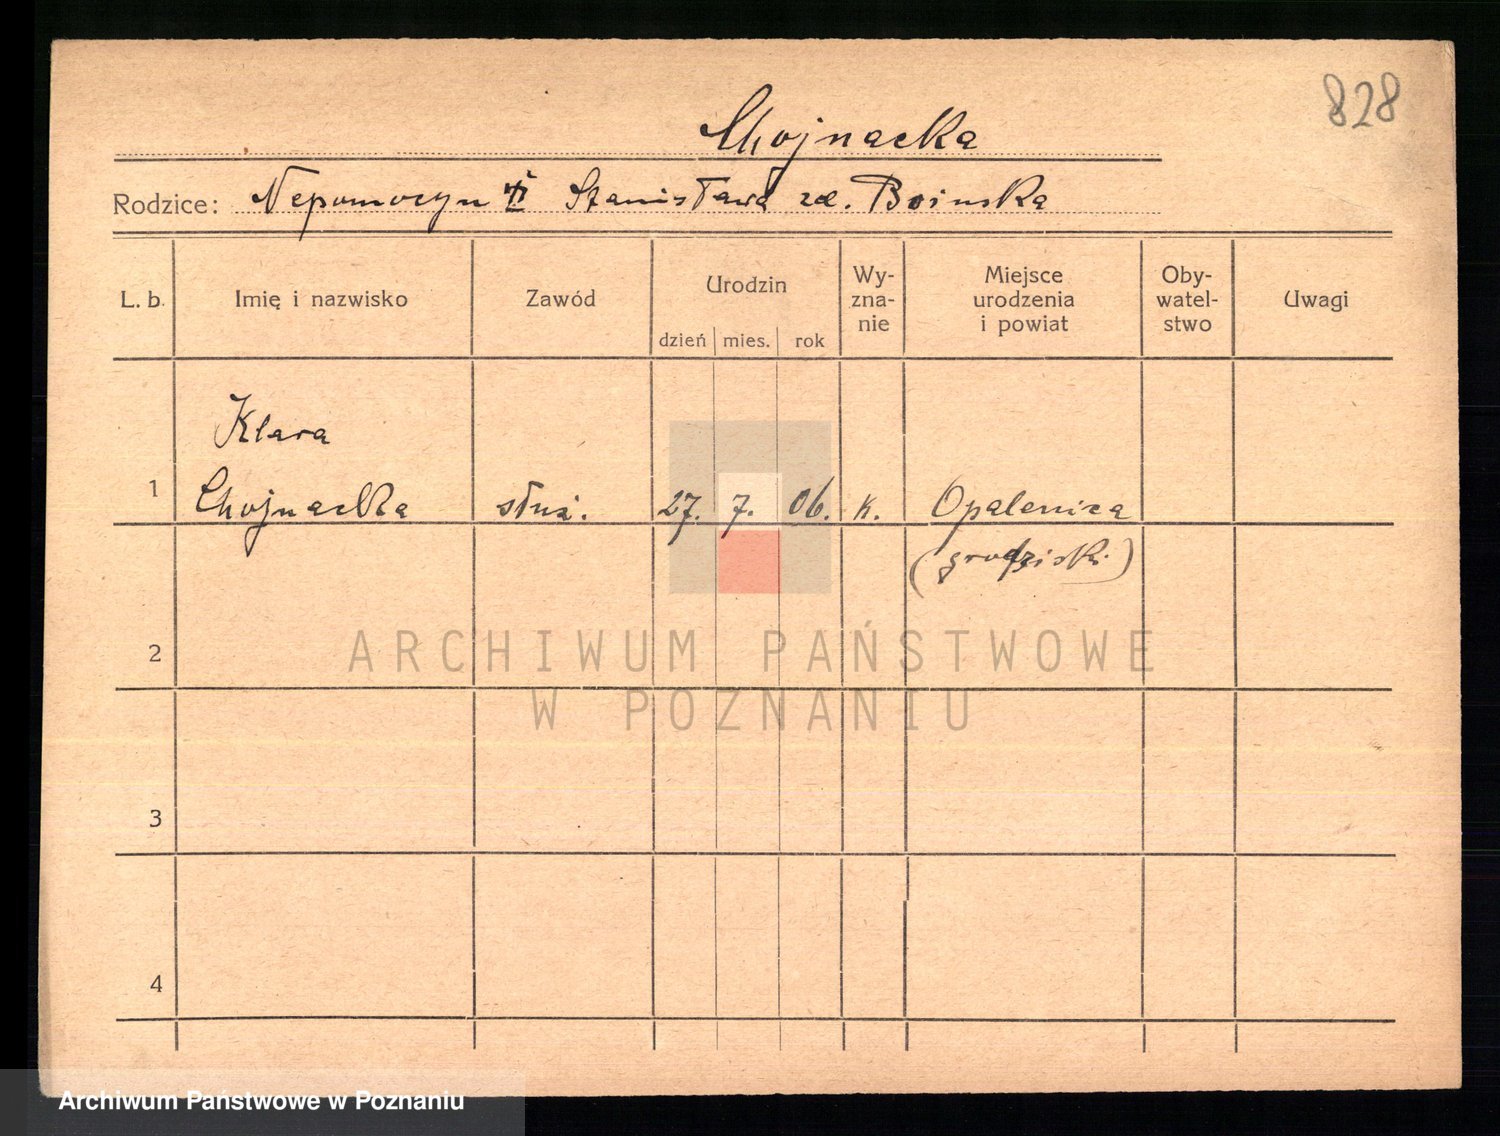 828
Chojnacka
Rodzice: Nepomocyn Stanisława zd. Boinska
L. b. Imię i nazwisko Zawód Urodzin Wy- zna- nie Miejsce urodzenia i powiat Oby- watel- stwo Uwagi
dzień mies. rok
Klara
1 Chojnacka służ. 27. 7. 06. k. Opalenica
(grodziski)
2
ARCHIWUM PAŃSTWOWE
W POZNANIU
3
4
Archiwum Państwowe w Poznaniu